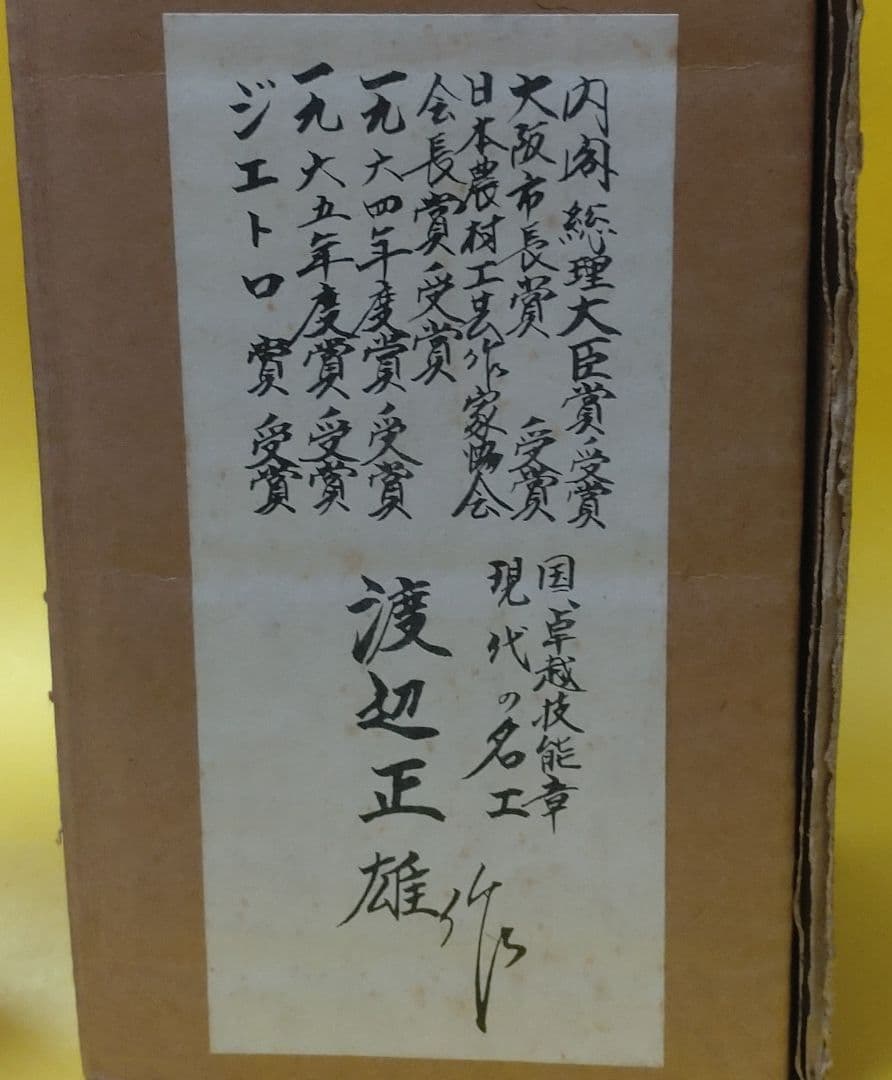 内閣総理大臣賞受賞
大阪市長賞 受賞
日本農村工芸作家協会
会長賞受賞
一九六四年度賞受賞
一九六五年度賞受賞
ジエトロ賞受賞
国、卓越技能章
現代の名工
渡辺正雄作